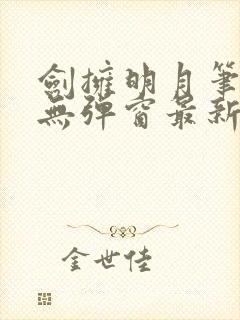 劍擁明月筆
無彈窗最新
金世佳